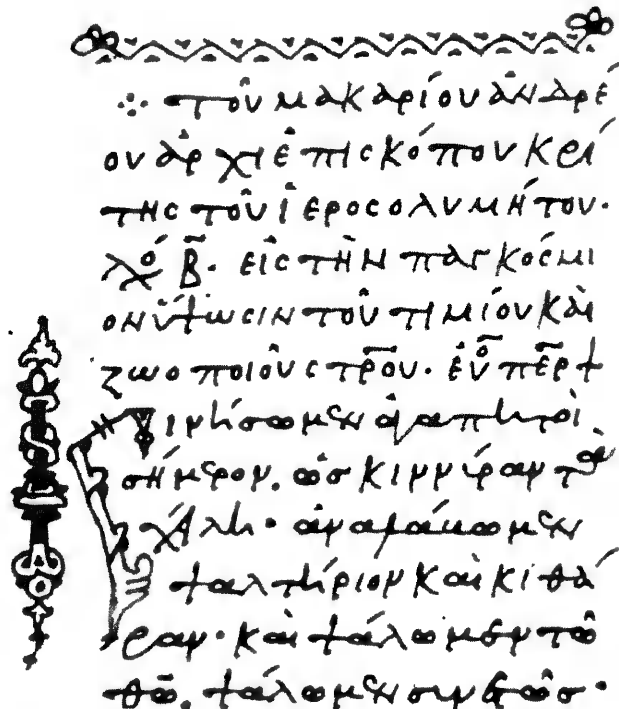 ⁘ τοῦ μακαρίου ἀνδρέ
ου ἀρχιἐπισκόπου κρί
της τοῦ ἱεροσολυμήτου·
λό β̄· εἰς τὴν παγκόσμι
ον ὕψωσιν τοῦ τιμίου καὶ
ζωοποιοῦ στρ̅οῦ· εὐο πε̅ρ
Κινήσωμεν ἀγαπητοὶ
σήμερον, ὡσ κινύραν τὰ
χείλη· ἀναλάβωμεν
ψαλτήριον καὶ κιθά
ραν· καὶ ψάλωμεν τῶ
θω̅, ψάλωμεν συνετῶσ·